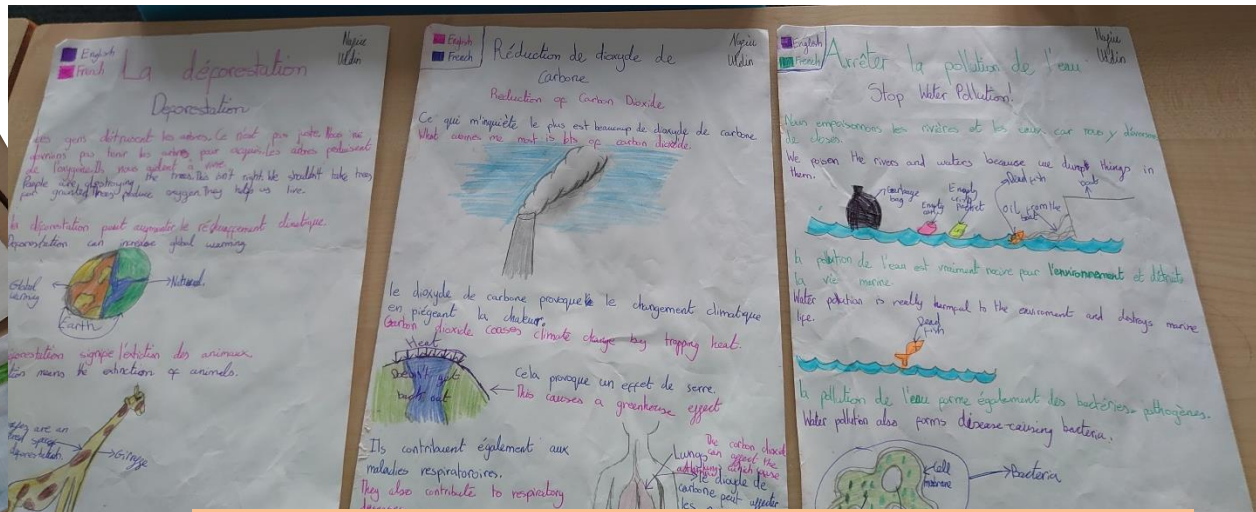 English
French
La déforestation
Naziu
Uldin
Deforestation
des gens détruisent les arbres. Ce n'est pas juste. Nous ne
devrions pas tenir les arbres pour acquis. Les arbres produisent
de l'oxygène. Ils nous aident à vivre.
People are destroying the trees. This isn't right. We shouldn't take trees
for granted. They produce oxygen. They help us live.
la déforestation peut augmenter le réchauffement climatique.
Deforestation can increase global warming
Global
warming
Natural
Earth
signifie l'extinction des animaux
means the extinction of animals.
are an
Giraffe
English
French
Réduction de dioxyde de
Carbone
Naziu
Uldin
Reduction of Carbon Dioxide
Ce qui m'inquiète le plus est beaucoup de dioxyde de carbone
What worries me most is lots of carbon dioxide.
le dioxyde de carbone provoque le changement climatique
en piégeant la chaleur.
Carbon dioxide causes climate change by trapping heat.
Heat
Doesn't get
back out
Cela provoque un effet de serre.
This causes a greenhouse effect
Ils contribuent également aux
maladies respiratoroires.
They also contribute to respiratory
Lungs
The carbon dioxid
can affect the
le dioxyde de
carbone peut affecter
les
English
French
Arrêter la pollution de l'eau
Naziu
Uldin
Stop Water Pollution!
Nous empoisonnons les rivières et les eaux car nous y
de choses.
We poison the rivers and waters because we dump things in
them.
Garbage
bag
Empty
can
Empty
crisp
packet
Dead fish
Oil from the
boat
boat
la pollution de l'eau est vraiment naive pour l'environnement et détruite
la vie marine.
Water pollution is really harmful to the enviroment and destroys marine
life.
Dead
fish
la pollution de l'eau forme également des bactéries pathogènes.
Water pollution also forms disease-causing bacteria.
Cell
membrane
Bacteria